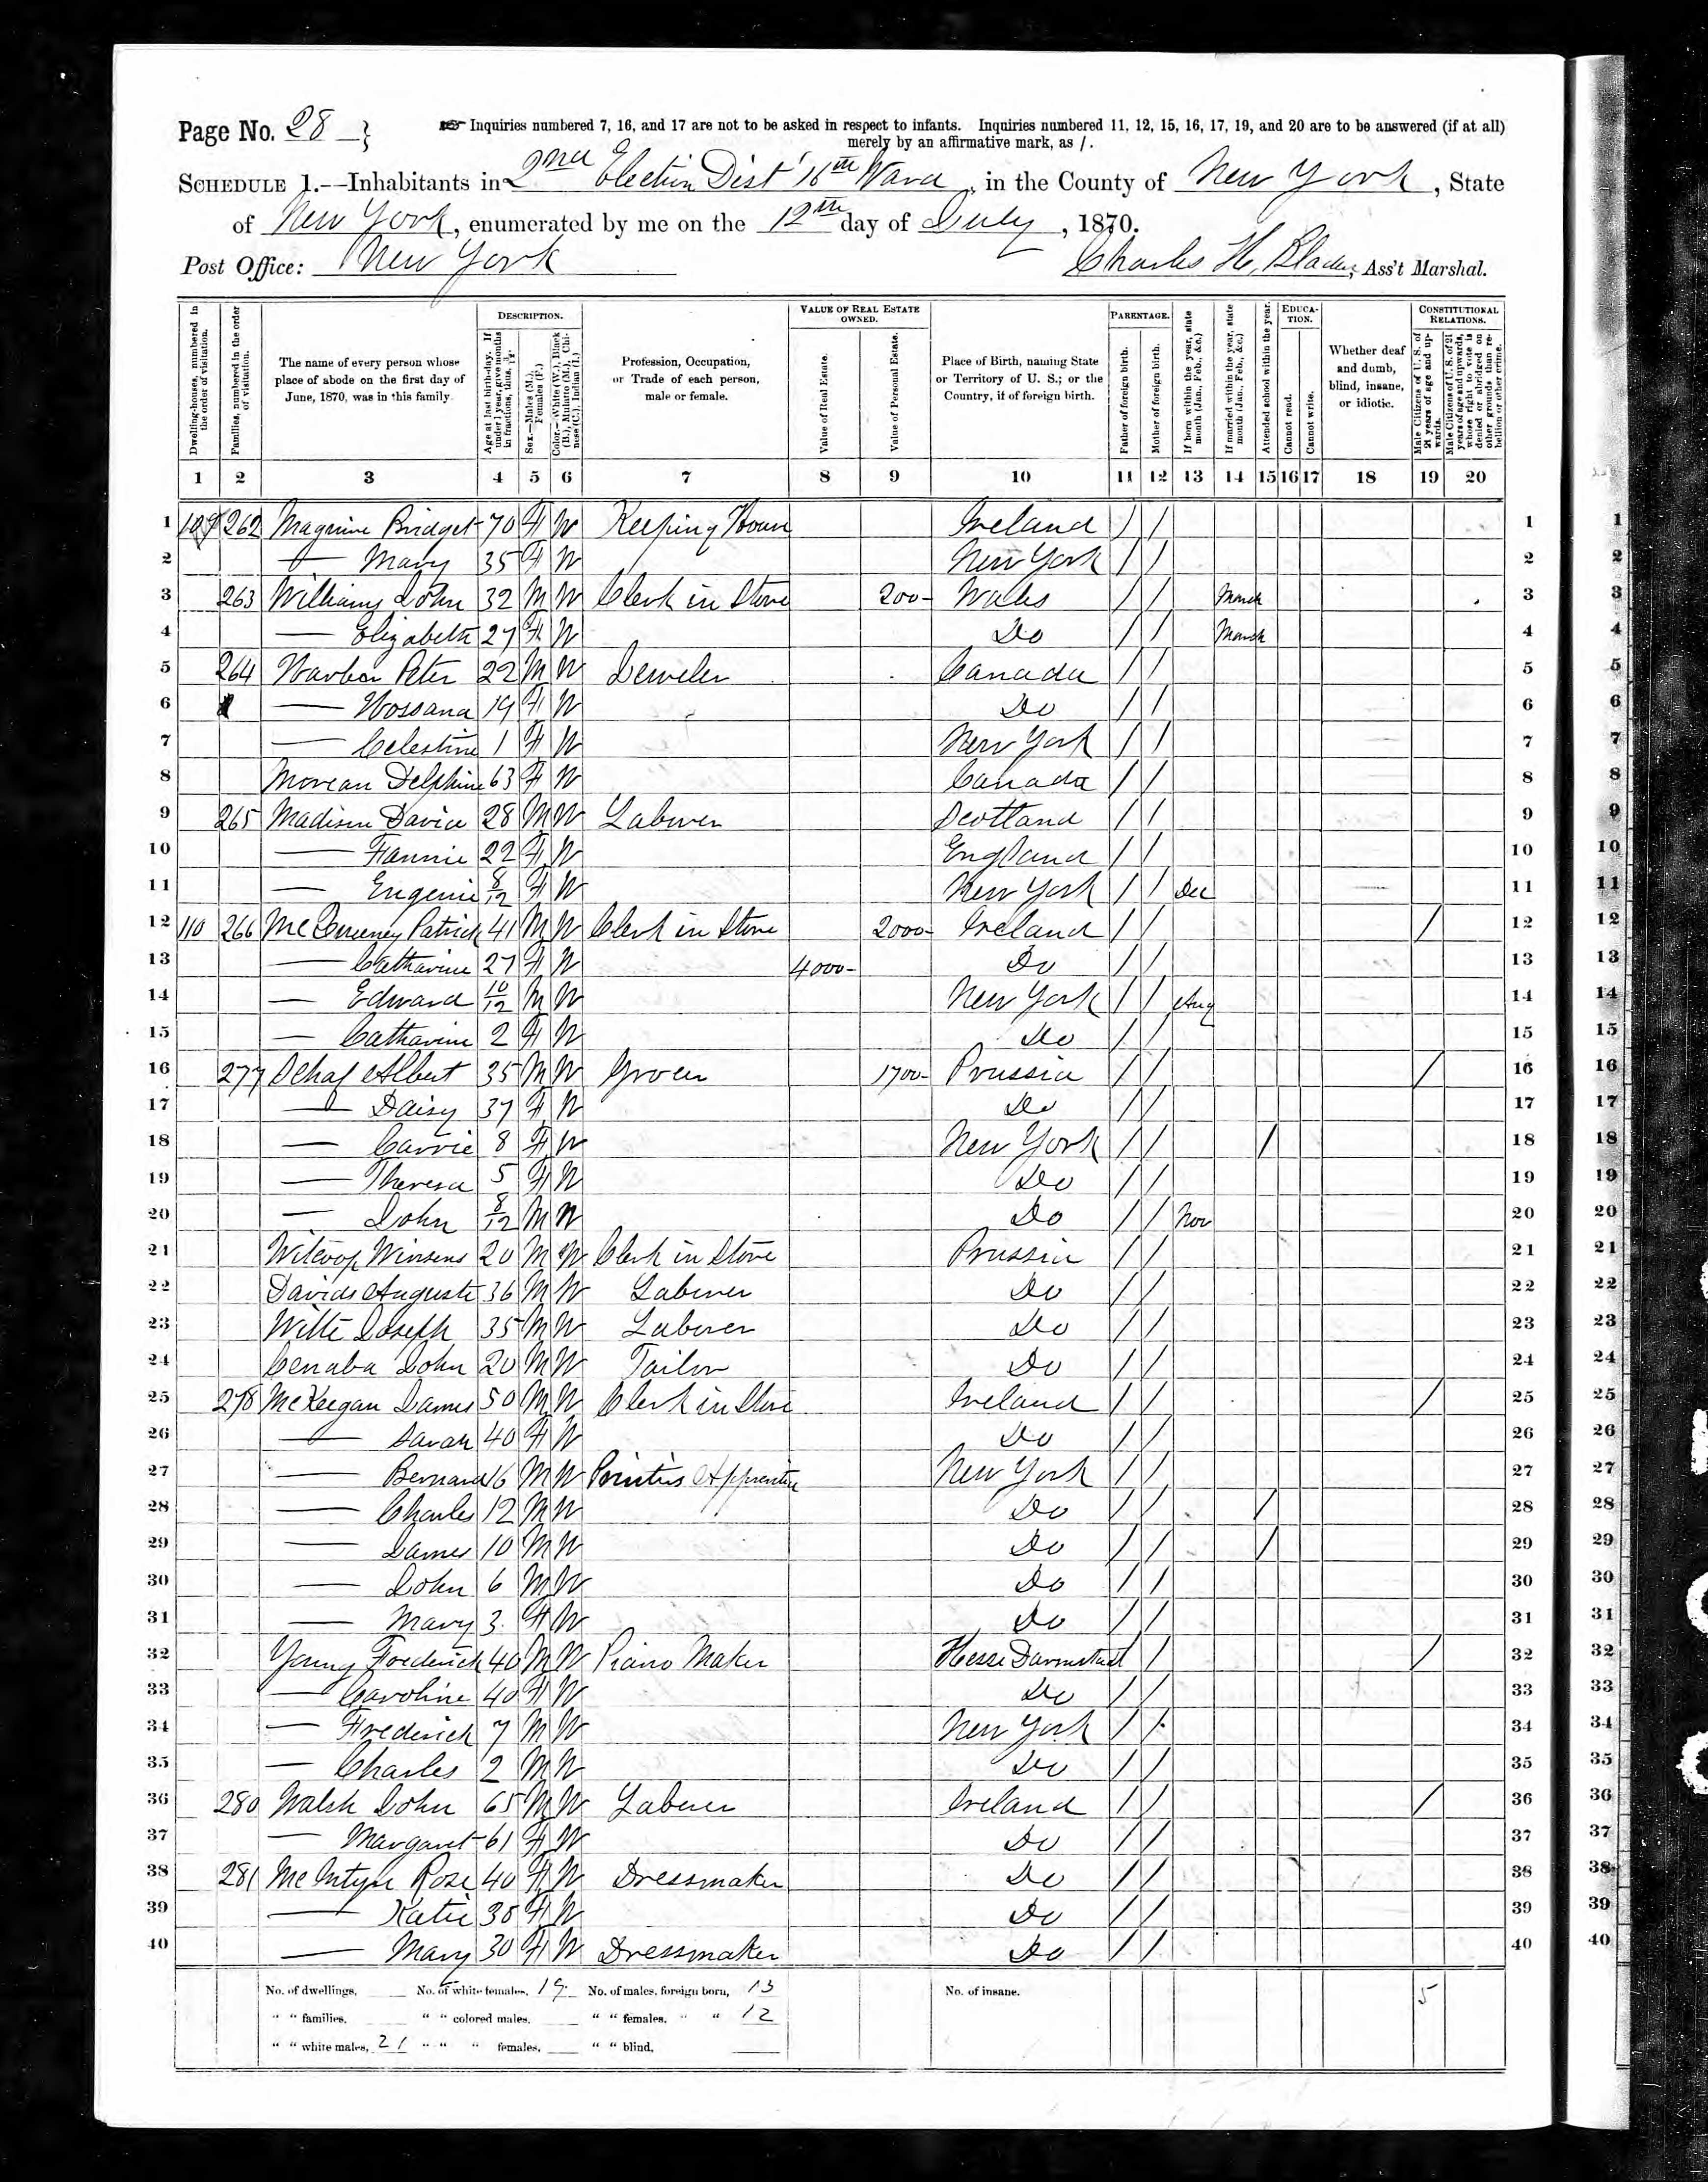 Page No. 28
Inquiries numbered 7, 16, and 17 are not to be asked in respect to infants. Inquiries numbered 11, 12, 15, 16, 17, 19, and 20 are to be answered (if at all)
merely by an affirmative mark, as /.
SCHEDULE 1.--Inhabitants in 2nd Election Dist 16th Ward, in the County of New York, State
of New York, enumerated by me on the 12th day of July, 1870.
Post Office: New York Charles H. Ass't Marshal.
Dwelling-houses, numbered in the order of visitation.
Families, numbered in the order of visitation.
The name of every person whose place of abode on the first day of June, 1870, was in this family.
DESCRIPTION.
Age at last birth-day. If under 1 year, give months in fractions, thus, 3/12.
Sex.--Males (M.), Females (F.)
Color.--White (W.), Black (B.), Mulatto (M.), Chinese (C.), Indian (I.)
Profession, Occupation, or Trade of each person, male or female.
VALUE OF REAL ESTATE OWNED.
Value of Real Estate.
Value of Personal Estate.
Place of Birth, naming State or Territory of U. S.; or the Country, if of foreign birth.
PARENTAGE.
Father of foreign birth.
Mother of foreign birth.
If born within the year, state month (Jan., Feb., &c.)
If married within the year, state month (Jan., Feb., &c.)
Attended school within the year.
EDUCATION.
Cannot read.
Cannot write.
Whether deaf and dumb, blind, insane, or idiotic.
CONSTITUTIONAL RELATIONS.
Male Citizens of U. S. of 21 years of age and upwards.
Male Citizens of U. S. of 21 years of age and upwards, whose right to vote is denied or abridged on other grounds than rebellion or other crime.
1 2 3 4 5 6 7 8 9 10 11 12 13 14 15 16 17 18 19 20
1 109 262 Bridget 70 F W Keeping House Ireland / / 1
2 — Mary 35 F W New York / / 2
3 263 Williams John 32 M W Clerk in Store 200- Wales / / March 3
4 — Elizabeth 27 F W Do / / March 4
5 264 Peter 22 M W Jeweler Canada / / 5
6 — 19 F W Do / / 6
7 — Celestine 1 F W New York / / 7
8 Delphine 63 F W Canada / / 8
9 265 Madison David 28 M W Laborer Scotland / / 9
10 — Fannie 22 F W England / / 10
11 — Eugenie 8/12 F W New York / / Dec 11
12 110 266 Patrick 41 M W Clerk in Store 2000- Ireland / / / 12
13 — Catharine 27 F W 4000- Do / / 13
14 — Edward 10/12 M W New York / / Aug 14
15 — Catharine 2 F W Do / / 15
16 277 Albert 35 M W Grocer 1700- Prussia / / / 16
17 — Daisy 37 F W Do / / 17
18 — Carrie 8 F W New York / / / 18
19 — Theresa 5 F W Do / / 19
20 — John 8/12 M W Do / / Nov 20
21 20 M W Clerk in Store Prussia / / 21
22 Davids Auguste 36 M W Laborer Do / / 22
23 Witte Joseph 35 M W Laborer Do / / 23
24 John 20 M W Tailor Do / / 24
25 278 McKeegan James 50 M W Clerk in Store Ireland / / / 25
26 — Sarah 40 F W Do / / 26
27 — Bernard 16 M W Printers Apprentice New York / / 27
28 — Charles 12 M W Do / / / 28
29 — James 10 M W Do / / / 29
30 — John 6 M W Do / / 30
31 — Mary 3 F W Do / / 31
32 Young Frederick 40 M W Piano Maker Hesse Darmstadt / / 32
33 — Caroline 40 F W Do / / 33
34 — Frederick 7 M W New York / / 34
35 — Charles 2 M W Do / / 35
36 280 Walsh John 65 M W Laborer Ireland / / / 36
37 — Margaret 61 F W Do / / 37
38 281 McIntyre Rose 40 F W Dressmaker Do / / 38
39 — Katie 38 F W Do / / 39
40 — Mary 30 F W Dressmaker Do / / 40
No. of dwellings, No. of white females, 19 No. of males, foreign born, 13 No. of insane. 5
" " families, " " colored males, " " females, " " 12
" " white males, 21 " " " females, " " blind,